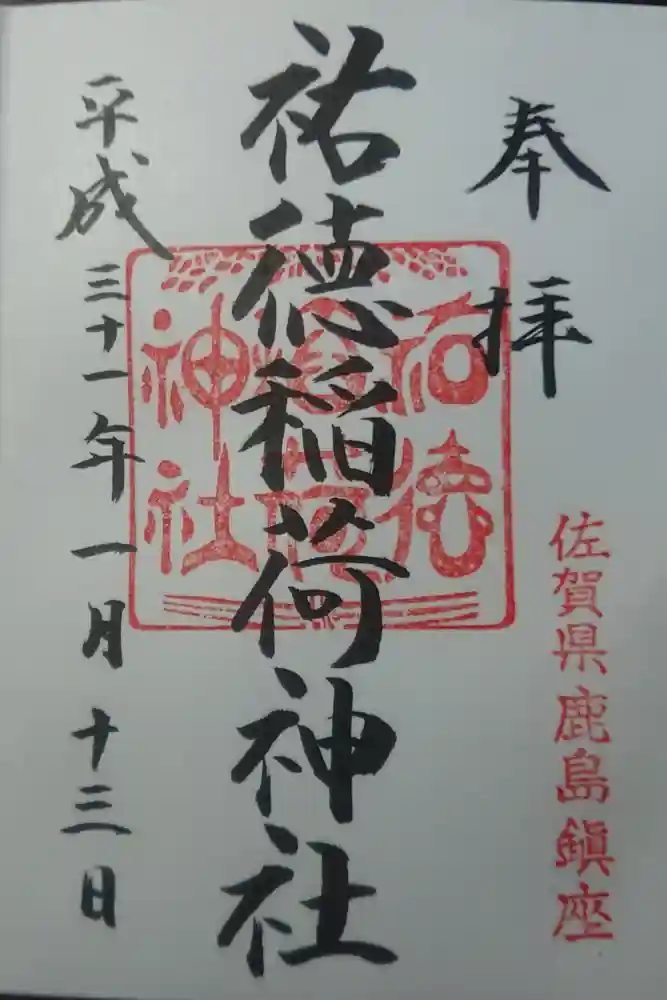 奉拝
佐賀県鹿島鎮座
祐徳稲荷神社
祐徳
稲荷
神社
平成三十一年一月十三日